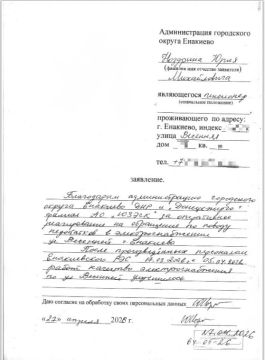 Администрация городского
округа Енакиево
Юрия
(фамилия имя отчество заявителя)
Михайловича
являющегося пенсионер
(социальное положение)
проживающего по адресу:
г. Енакиево, индекс
улица Весенняя
дом кв.
тел. +7
заявление.
Благодарим администрацию городского
округа Енакиево ДНР и "Донецкэнерго"
филиал АО "ЮЭСК" за оперативное
реагирование на обращение по поводу
перебоев в электроснабжении
ул Весенней г Енакиево
После произведённых персоналом
Енакиевского РЭС
работ качество электроснабжения
по ул Весенней улучшилось
Даю согласие на обработку своих персональных данных
«22» апреля 2026 г.